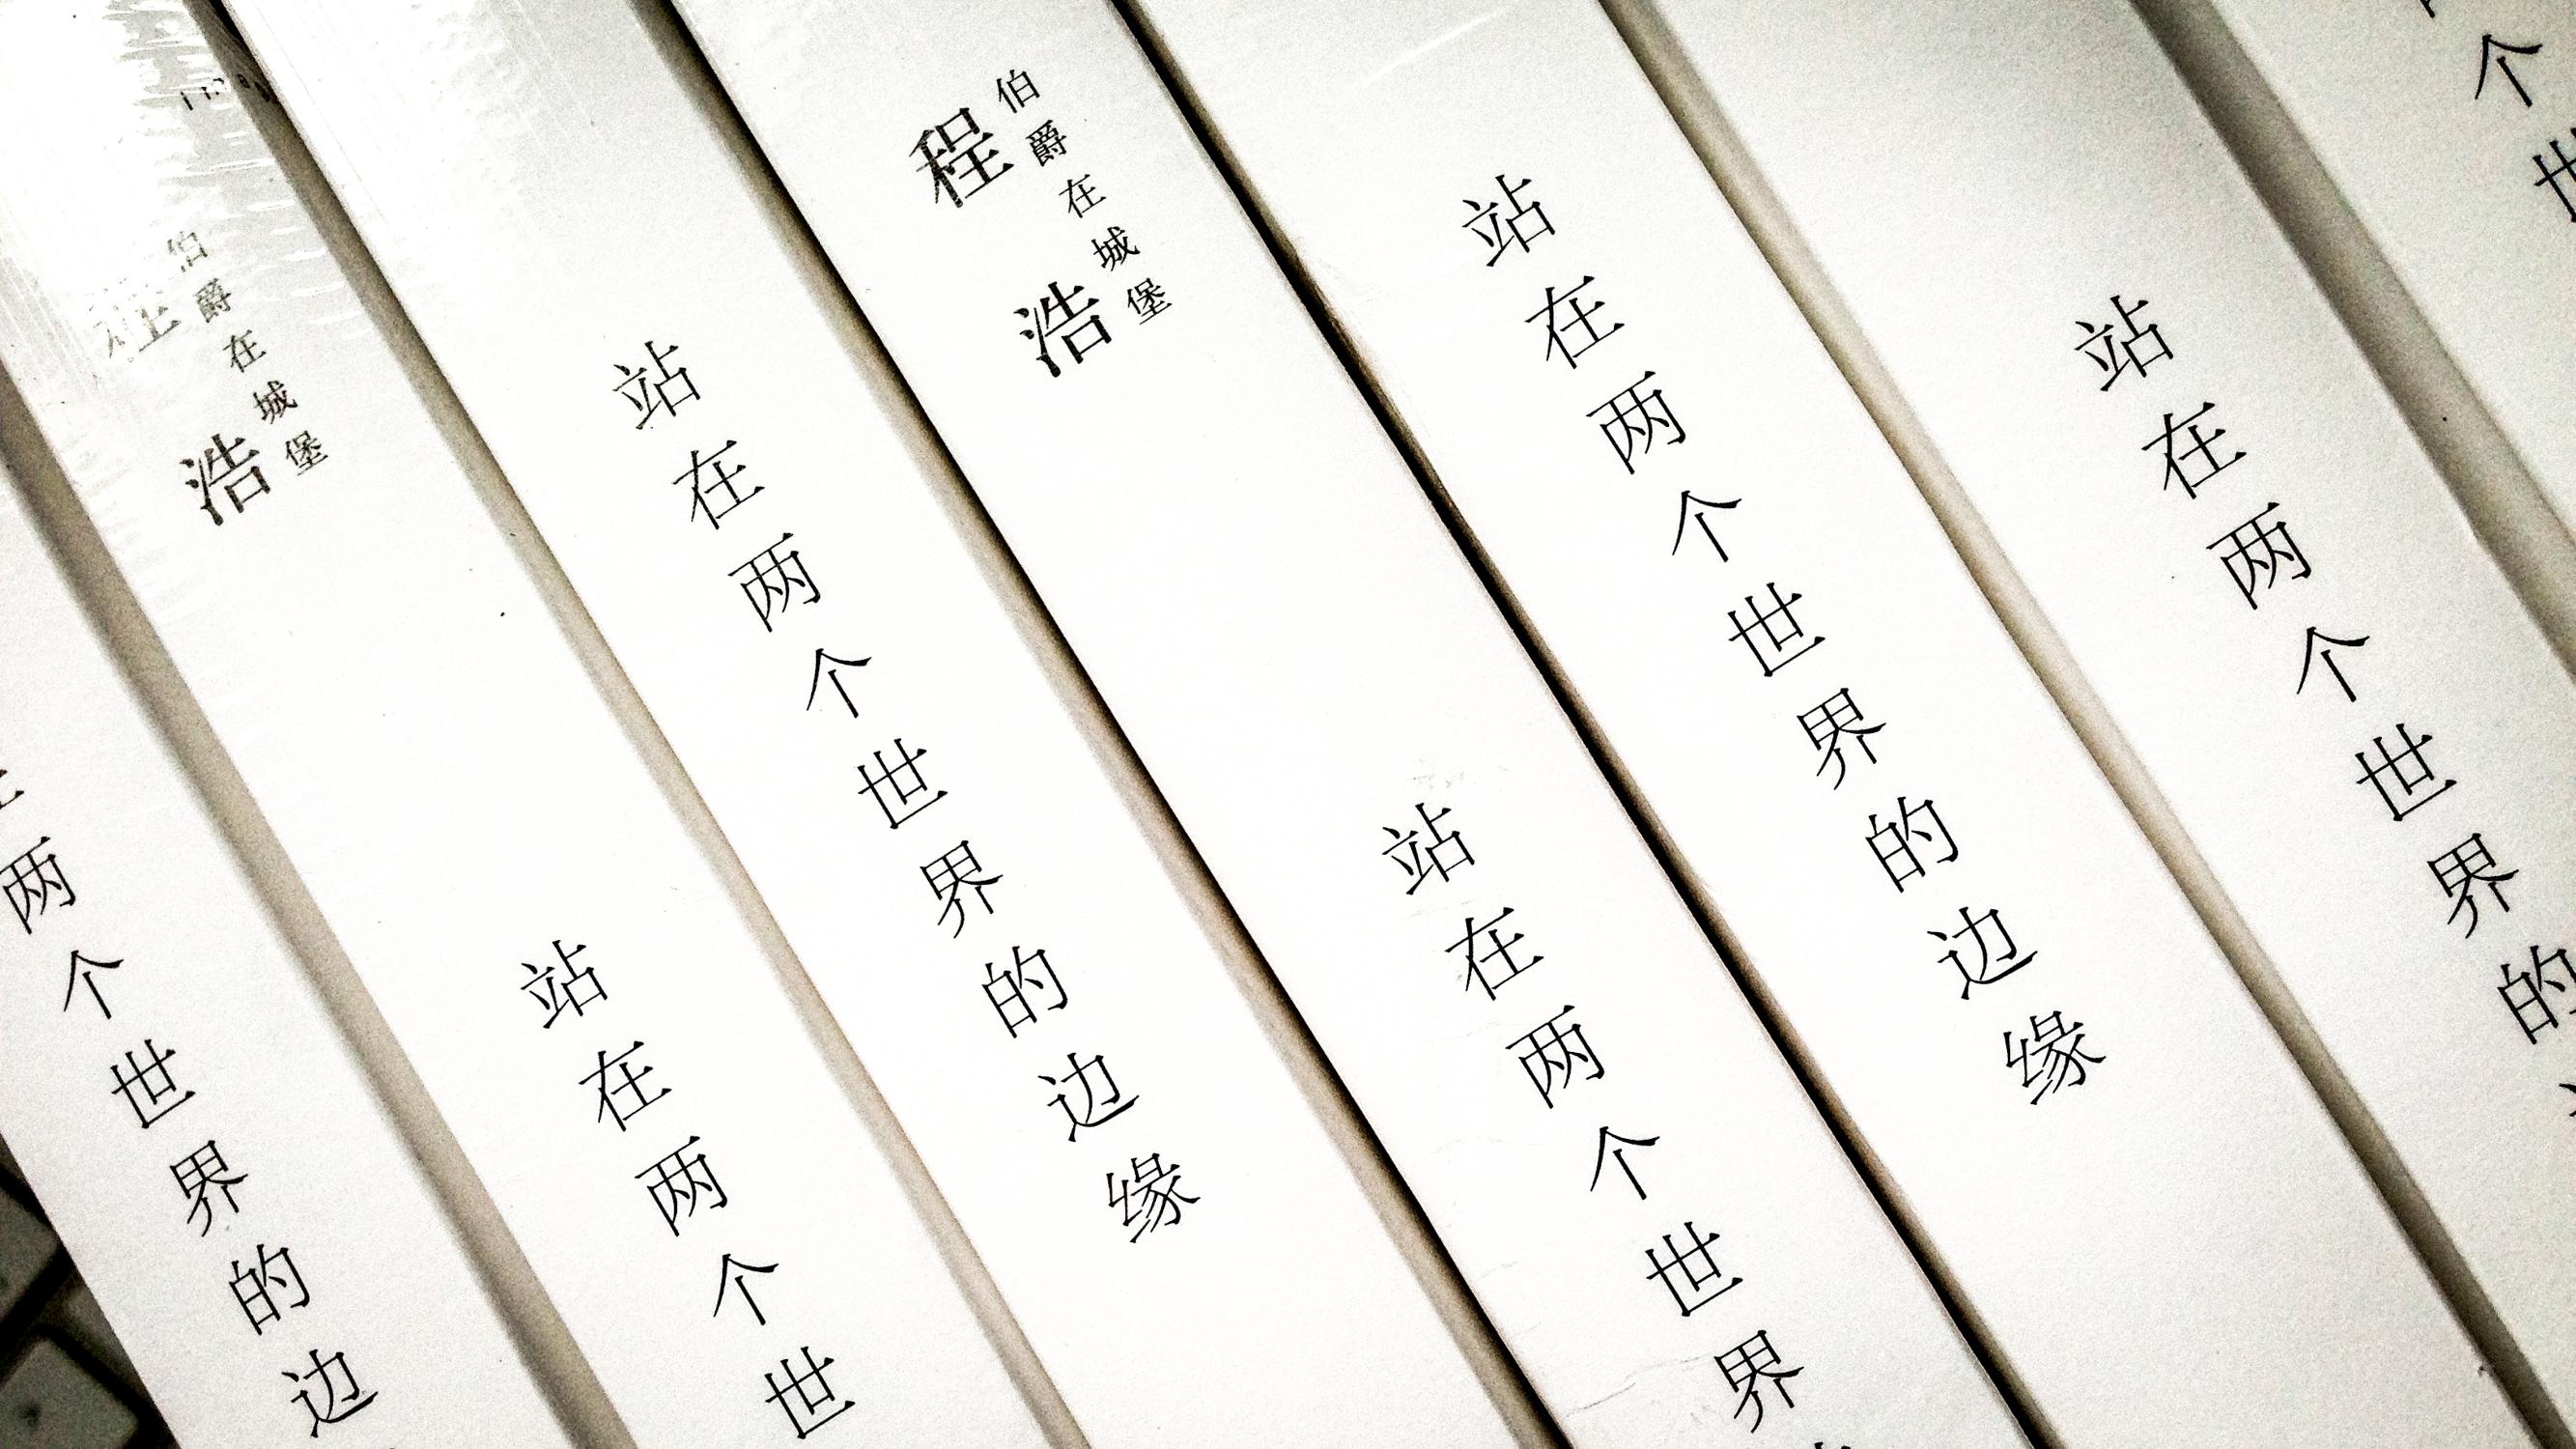 两个世界的边
伯爵在城堡
浩
站在两个世
站在两个世界的边缘
伯爵在城堡
程浩
站在两个世界
站在两个世界的边缘
站在两个世界的
个世